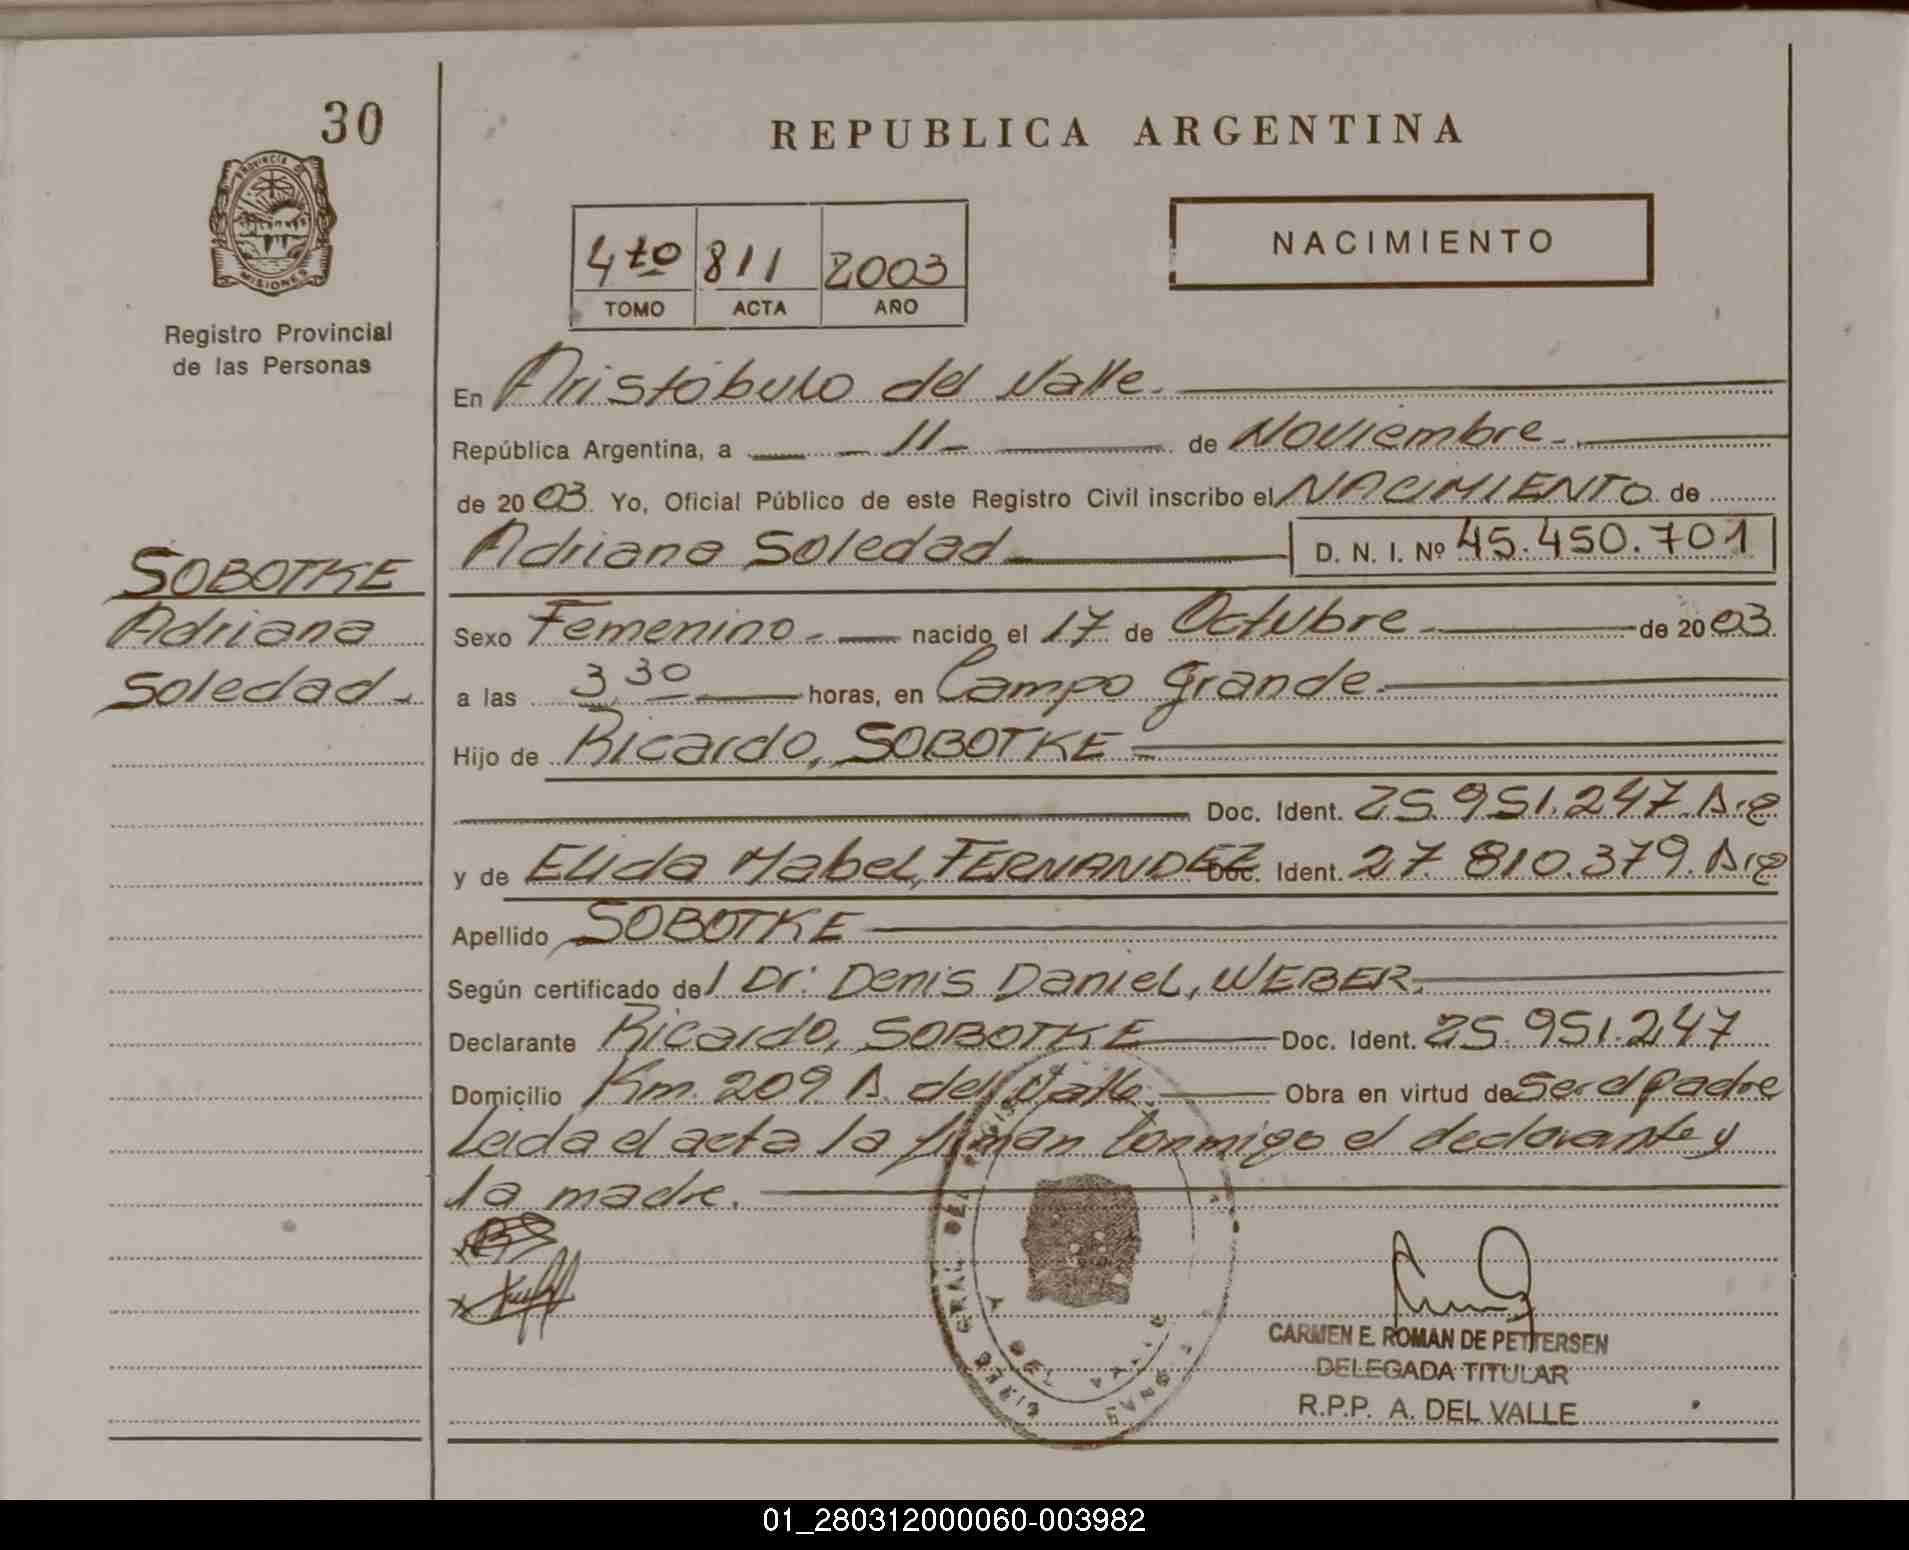 30
PROVINCIA DE
MISIONES
Registro Provincial
de las Personas
REPUBLICA ARGENTINA
4to 811 2003
TOMO ACTA AÑO
NACIMIENTO
En Aristóbulo del Valle.
República Argentina, a 11 de Noviembre
de 2003 Yo, Oficial Público de este Registro Civil inscribo el NACIMIENTO de
Adriana Soledad D. N. I. Nº 45.450.701
SOBOTKE
Adriana
Soledad
Sexo Femenino nacido el 17 de Octubre de 2003
a las 3,30 horas, en Campo Grande
Hijo de Ricardo, SOBOTKE
Doc. Ident. 25.951.247 Arg
y de Elida Mabel, FERNANDEZ Doc. Ident. 27.810.379. Arg
Apellido SOBOTKE
Según certificado del Dr: Denis Daniel, WEBER.
Declarante Ricardo, SOBOTKE Doc. Ident. 25.951.247
Domicilio Km. 209 A. del Valle Obra en virtud de Ser el padre
Leida el acta la firman conmigo el declarante y
la madre.
CARMEN E. ROMAN DE PETTERSEN
DELEGADA TITULAR
R.P.P. A. DEL VALLE
01_280312000060-003982